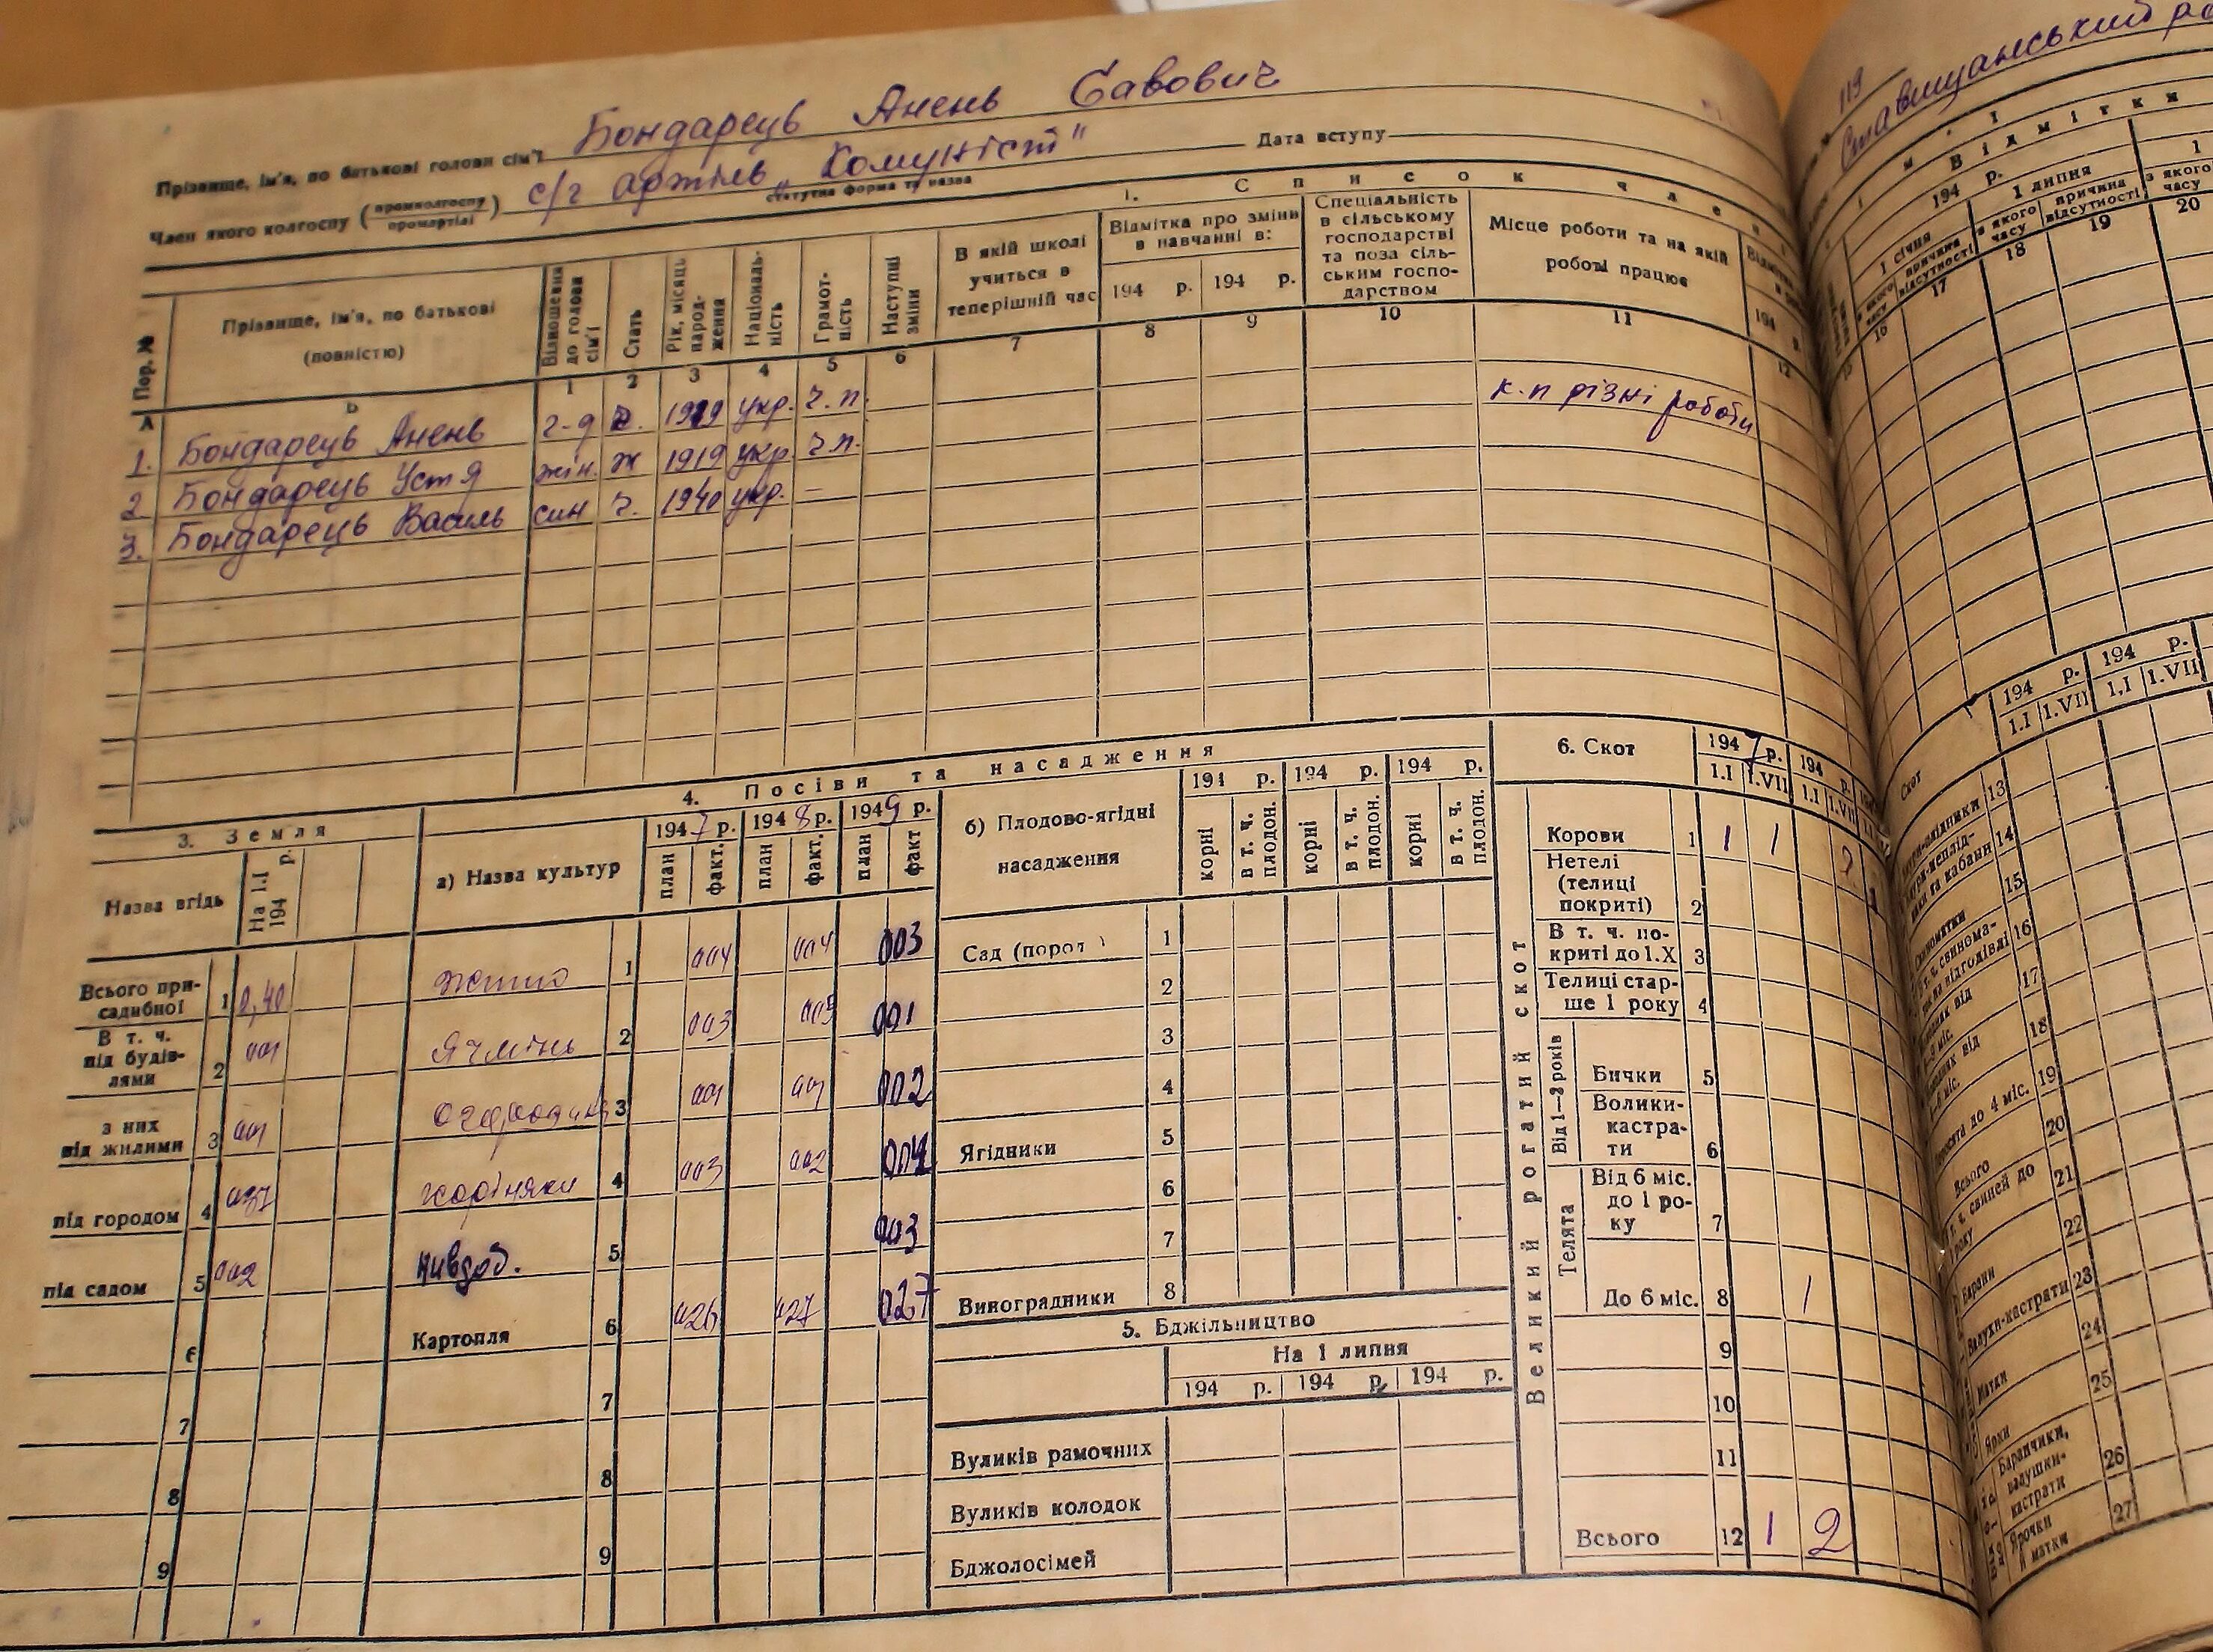 Прізвище, ім'я, по батькові голови сім'ї Бондарець Анень Савович
Член якого колгоспу (промколгоспу промартілі) с/г артіль „Комуніст" Дата вступу
статутна форма та назва
1. Список чле
Пор. №
Прізвище, ім'я, по батькові (повністю)
Відношення до голови сім'ї
Стать
Рік, місяць народження
Національність
Грамотність
Наступні зміни
В якій школі учиться в теперішній час
Відмітка про зміни в навчанні в:
194 р. 194 р.
Спеціальність в сільському господарстві та поза сільським господарством
Місце роботи та на якій роботі працює
А Б 1 2 3 4 5 6 7 8 9 10 11 12
1. Бондарець Анень г-д ч. укр. ч.п. к.п різні роботи
2 Бондарець Устя жін. ж 1919 укр. ч.п.
3. Бондарець Василь син ч. 1940 укр. –
3. Земля
Назва вгідь На 1.I 194 р.
Всього присадибної 1 0,40
В т. ч. під будівлями 2 001
з них під жилими 3 001
під городом 4 037
під садом 5 002
6
7
8
9
4. Посіви та насадження
а) Назва культур
1947 р. 1948 р. 1949 р.
план факт. план факт. план факт
жито 1 004 004 003
Ячмінь 2 003 005 001
3 001 001 002
4 003 002 004
5 003
Картопля 6 026 027 027
7
8
9
б) Плодово-ягідні насадження
194 р. 194 р. 194 р.
корні в т. ч. плодон. корні в т. ч. плодон. корні в т. ч. плодон.
Сад (порот ) 1
2
3
4
Ягідники 5
6
7
Виноградники 8
5. Бджільництво
На 1 липня
194 р. 194 р. 194 р.
Вуликів рамочних
Вуликів колодок
Бджолосімей
6. Скот
1947 р. 194
1.I 1.VII 1.I 1.VII
Великий рогатий скот
Корови 1 1 1
Нетелі (телиці покриті) 2
В т. ч. покриті до 1.X 3
Телиці старше 1 року 4
Від 1—2 років
Бички 5
Волики-кастрати 6
Телята
Від 6 міс. до 1 року 7
До 6 міс. 8 1
9
10
11
Всього 12 1 2
119
Ставищанський
Відмітки
194 р.
1 січня 1 липня 1
з якого часу причина відсутності з якого часу причина відсутності з якого часу
16 17 18 19 20
Скот
194 р. 194 р.
1.I 1.VII 1.I 1.VII
13
14
15
16
17
18
до 4 міс. 19
Всього 20
свиней до року 21
Барани 22
Валухи-кастрати 23
24
Матки 25
Ярки
Баранчики, валушки-кастрати 26
Ярочки й матки 27